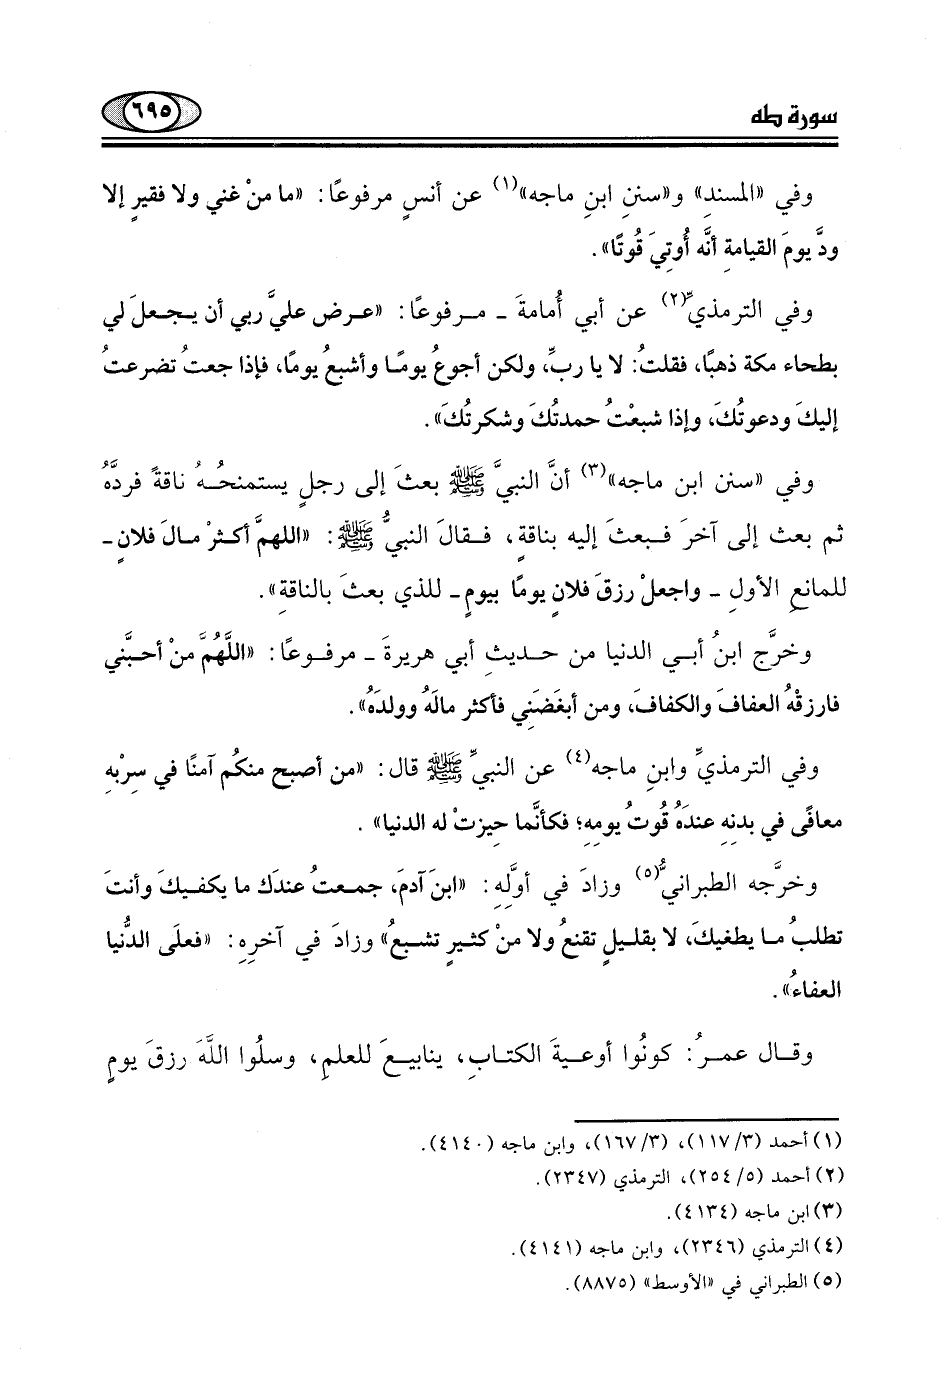 سورة طه
٦٩٥
وفي «المسندِ» و«سننِ ابنِ ماجه»(١) عن أنسٍ مرفوعًا: «ما منْ غني ولا فقيرٍ إلا
ودَّ يومَ القيامةِ أنَّه أُوتيَ قُوتًا».
وفي الترمذيِّ(٢) عن أبي أُمامةَ ـ مرفوعًا: «عرض عليَّ ربي أن يجعلَ لي
بطحاء مكة ذهبًا، فقلتُ: لا يا ربِّ، ولكن أجوعُ يومًا وأشبعُ يومًا، فإذا جعتُ تضرعتُ
إليكَ ودعوتُكَ، وإذا شبعْتُ حمدتُكَ وشكرتُكَ».
وفي «سنن ابن ماجه»(٣) أنَّ النبيَّ ﷺ بعثَ إلى رجلٍ يستمنحُهُ ناقةً فردَّهُ
ثم بعث إلى آخرَ فبعثَ إليه بناقةٍ، فقالَ النبيُّ ﷺ: «اللهمَّ أكثرْ مالَ فلانٍ ـ
للمانعِ الأولِ ـ واجعلْ رزقَ فلانٍ يومًا بيومٍ ـ للذي بعثَ بالناقةِ».
وخرَّج ابنُ أبي الدنيا من حديثِ أبي هريرةَ ـ مرفوعًا: «اللَّهُمَّ منْ أحبَّني
فارزقْهُ العفافَ والكفافَ، ومن أبغَضَني فأكثر مالَهُ وولدَهُ».
وفي الترمذيِّ وابنِ ماجه(٤) عن النبيِّ ﷺ قال: «من أصبح منكُم آمنًا في سِرْبِهِ
معافًى في بدنهِ عندَهُ قُوتُ يومِهِ؛ فكأنَّما حيزتْ له الدنيا».
وخرَّجه الطبرانيُّ(٥) وزادَ في أوَّلِهِ: «ابنَ آدمَ، جمعتُ عندَك ما يكفيكَ وأنتَ
تطلبُ ما يطغيكَ، لا بقليلٍ تقنعُ ولا منْ كثيرٍ تشبعُ» وزادَ في آخرِهِ: «فعلَى الدُّنيا
العفاءُ».
وقال عمرُ: كونُوا أوعيةَ الكتابِ، ينابيعَ للعلمِ، وسلُوا اللَّهَ رزقَ يومٍ
(١) أحمد (٣/ ١١٧)، (٣/ ١٦٧)، وابن ماجه (٤١٤٠).
(٢) أحمد (٥/ ٢٥٤)، الترمذي (٢٣٤٧).
(٣) ابن ماجه (٤١٣٤).
(٤) الترمذي (٢٣٤٦)، وابن ماجه (٤١٤١).
(٥) الطبراني في «الأوسط» (٨٨٧٥).